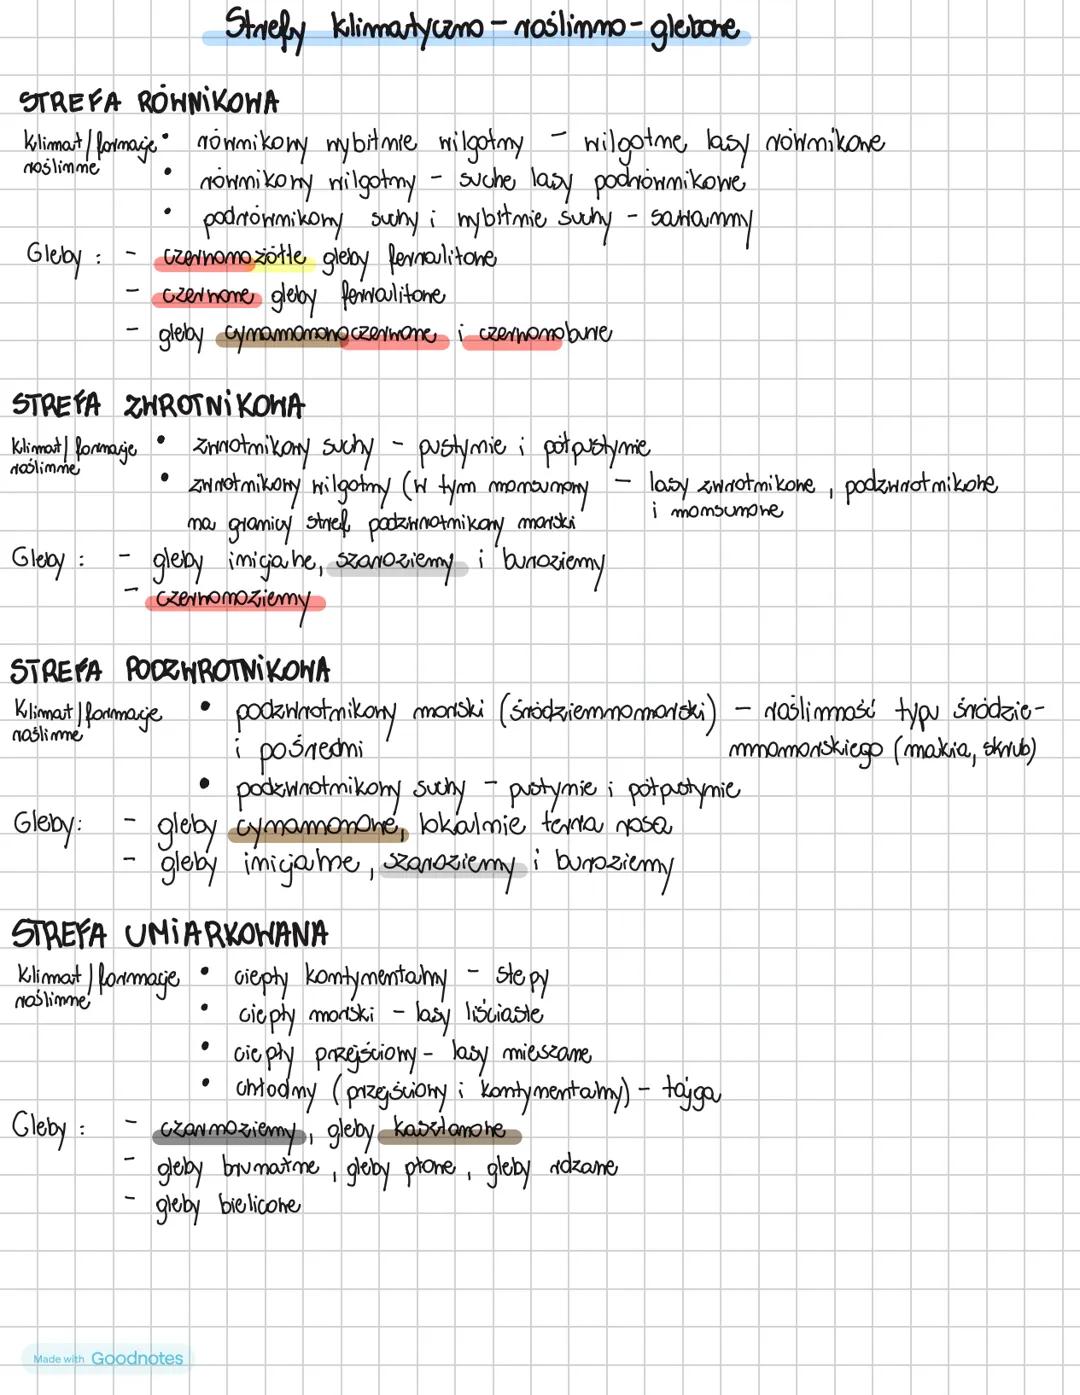 Strefy klimatyczno-roślinno-glebowe
STREFA RÓWNIKOWA
Klimat/formacje roślinne
• równikowy wybitnie wilgotny - wilgotne lasy równikowe
• równikowy wilgotny - suche lasy podrównikowe
• podrównikowy suchy i wybitnie suchy - sawanny
Gleby: - czerwonożółte gleby ferralitowe
- czerwone gleby ferralitowe
- gleby cynamonowoczerwone i czerwonobure
STREFA ZWROTNIKOWA
Klimat/formacje roślinne
• zwrotnikowy suchy - pustynie i półpustynie
• zwrotnikowy wilgotny (w tym monsunowy - lasy zwrotnikowe, podzwrotnikowe
na granicy stref podzwrotnikowy morski
i monsunowe
Gleby: - gleby inicjalne, szaroziemy i buroziemy
- czerwonoziemy
STREFA PODZWROTNIKOWA
Klimat/formacje roślinne
• podzwrotnikowy morski (śródziemnomorski) - roślinność typu śródzie-
i pośredni
mnomorskiego (makia, skrub)
• podzwrotnikowy suchy - pustynie i półpustynie
Gleby: - gleby cynamonowe, lokalnie terra rosa
- gleby inicjalne, szaroziemy i buroziemy
STREFA UMIARKOWANA
Klimat/formacje roślinne
• ciepły kontynentalny - stepy
• ciepły morski - lasy liściaste
• ciepły przejściowy - lasy mieszane
• chłodny (przejściowy i kontynentalny) - tajga
Gleby: - czarnoziemy, gleby kasztanowe
- gleby brunatne, gleby płowe, gleby rdzawe
- gleby bielicowe
Made with Goodnotes